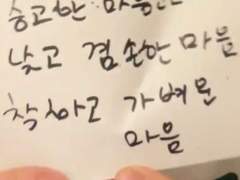 숭고한 마음
낮고 겸손한 마음
착하고 가벼운
마음